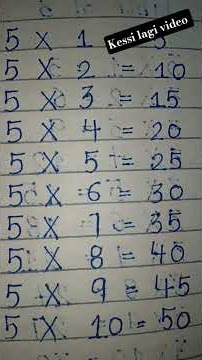 Kessi lagi video
5 X 1
5 X 2 = 10
5 X 3 = 15
5 X 4 = 20
5 X 5 = 25
5 X 6 = 30
5 X 7 = 35
5 X 8 = 40
5 X 9 = 45
5 X 10 = 50